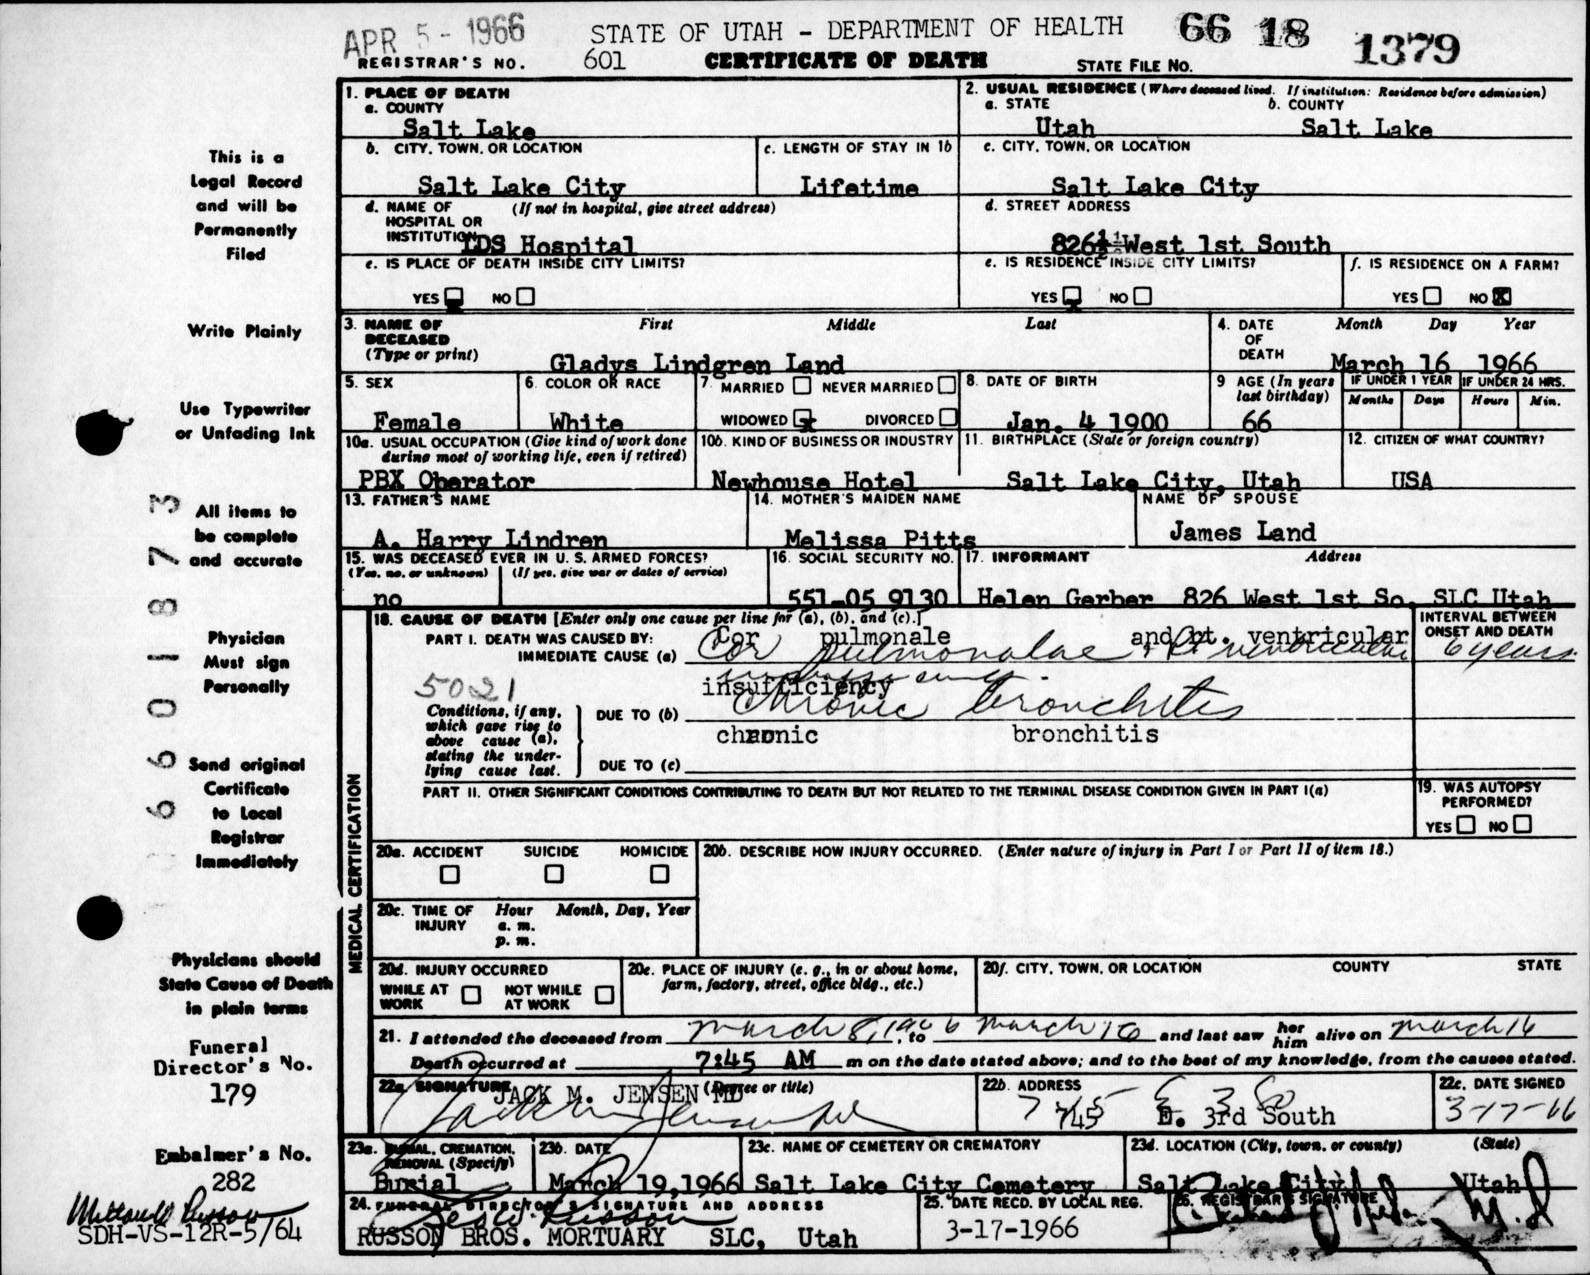 APR 5 - 1966 STATE OF UTAH - DEPARTMENT OF HEALTH 66 18 1379
REGISTRAR'S NO. 601 CERTIFICATE OF DEATH STATE FILE NO.
1. PLACE OF DEATH
a. COUNTY
Salt Lake
2. USUAL RESIDENCE (Where deceased lived. If institution: Residence before admission)
a. STATE b. COUNTY
Utah Salt Lake
b. CITY, TOWN, OR LOCATION
Salt Lake City
c. LENGTH OF STAY IN 1b
Lifetime
c. CITY, TOWN, OR LOCATION
Salt Lake City
d. NAME OF (If not in hospital, give street address)
HOSPITAL OR
INSTITUTION LDS Hospital
d. STREET ADDRESS
826½ West 1st South
e. IS PLACE OF DEATH INSIDE CITY LIMITS?
YES NO
e. IS RESIDENCE INSIDE CITY LIMITS?
YES NO
f. IS RESIDENCE ON A FARM?
YES NO X
3. NAME OF First Middle Last
DECEASED
(Type or print) Gladys Lindgren Land
4. DATE Month Day Year
OF
DEATH March 16 1966
5. SEX
Female
6. COLOR OR RACE
White
7. MARRIED NEVER MARRIED
WIDOWED x DIVORCED
8. DATE OF BIRTH
Jan. 4 1900
9 AGE (In years
last birthday)
66
IF UNDER 1 YEAR IF UNDER 24 HRS.
Months Days Hours Min.
10a. USUAL OCCUPATION (Give kind of work done
during most of working life, even if retired)
PBX Operator
10b. KIND OF BUSINESS OR INDUSTRY
Newhouse Hotel
11. BIRTHPLACE (State or foreign country)
Salt Lake City, Utah
12. CITIZEN OF WHAT COUNTRY?
USA
13. FATHER'S NAME
A. Harry Lindren
14. MOTHER'S MAIDEN NAME
Melissa Pitts
NAME OF SPOUSE
James Land
15. WAS DECEASED EVER IN U. S. ARMED FORCES?
(Yes, no, or unknown) (If yes, give war or dates of service)
no
16. SOCIAL SECURITY NO.
551-05 9130
17. INFORMANT Address
Helen Gerber 826 West 1st So. SLC Utah
MEDICAL CERTIFICATION
18. CAUSE OF DEATH [Enter only one cause per line for (a), (b), and (c).]
INTERVAL BETWEEN
ONSET AND DEATH
PART I. DEATH WAS CAUSED BY: Cor pulmonale and rt. ventricular
IMMEDIATE CAUSE (a) Cor pulmonalae + rt ventricular 6 years
5021 insufficiency
Conditions, if any,
which gave rise to
above cause (a),
stating the under-
lying cause last.
DUE TO (b) Chronic bronchitis
chronic bronchitis
DUE TO (c)
PART II. OTHER SIGNIFICANT CONDITIONS CONTRIBUTING TO DEATH BUT NOT RELATED TO THE TERMINAL DISEASE CONDITION GIVEN IN PART I(a)
19. WAS AUTOPSY
PERFORMED?
YES NO
20a. ACCIDENT SUICIDE HOMICIDE
20b. DESCRIBE HOW INJURY OCCURRED. (Enter nature of injury in Part I or Part II of item 18.)
20c. TIME OF Hour Month, Day, Year
INJURY a. m.
p. m.
20d. INJURY OCCURRED
WHILE AT NOT WHILE
WORK AT WORK
20e. PLACE OF INJURY (e. g., in or about home,
farm, factory, street, office bldg., etc.)
20f. CITY, TOWN, OR LOCATION COUNTY STATE
21. I attended the deceased from March 8, 1966, to March 16 and last saw her him alive on March 16
Death occurred at 7:45 AM m on the date stated above; and to the best of my knowledge, from the causes stated.
22a SIGNATURE (Degree or title)
JACK M. JENSEN MD
Jack M Jensen MD
22b. ADDRESS
745 E 3 So
745 E. 3rd South
22c. DATE SIGNED
3-17-66
23a. BURIAL, CREMATION,
REMOVAL (Specify)
Burial
23b. DATE
March 19,1966
23c. NAME OF CEMETERY OR CREMATORY
Salt Lake City Cemetery
23d. LOCATION (City, town, or county) (State)
Salt Lake City Utah
24. FUNERAL DIRECTOR'S SIGNATURE AND ADDRESS
RUSSON BROS. MORTUARY SLC, Utah
25. DATE RECD. BY LOCAL REG.
3-17-1966
26. REGISTRAR'S SIGNATURE
This is a
Legal Record
and will be
Permanently
Filed
Write Plainly
Use Typewriter
or Unfading Ink
All items to
be complete
and accurate
Physician
Must sign
Personally
Send original
Certificate
to Local
Registrar
Immediately
Physicians should
State Cause of Death
in plain terms
Funeral
Director's No.
179
Embalmer's No.
282
SDH-VS-12R-5/64
6 6 0 1 8 7 3